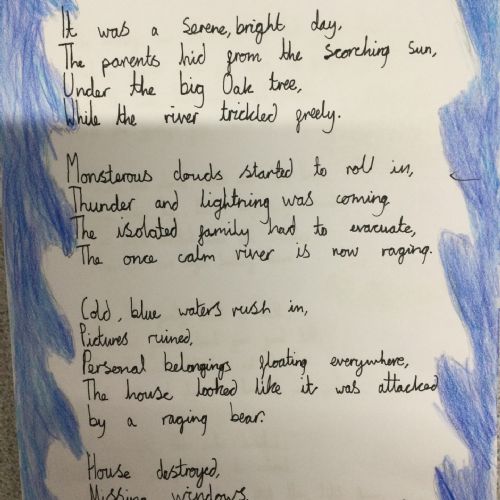 It was a serene, bright day,
The parents hid from the scorching sun,
Under the big Oak tree,
While the river trickled freely.
Monsterous clouds started to roll in,
Thunder and lightning was coming
The isolated family had to evacuate,
The once calm river is now raging.
Cold, blue waters rush in,
Pictures ruined,
Personal belongings floating everywhere,
The house looked like it was attacked
by a raging bear.
House destroyed,
Missing windows